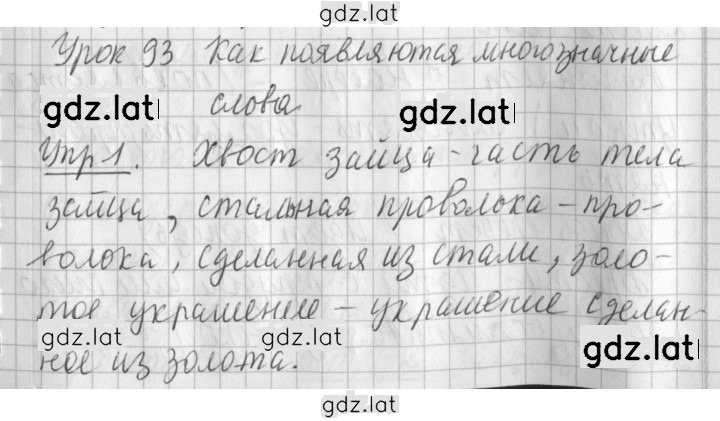 gdz.lat
Урок 93 Как появляются многозначные
gdz.lat слова. gdz.lat
Упр 1. Хвост зайца - часть тела
зайца, стальная проволока - про-
волока, сделанная из стали, золо-
тое украшение - украшение сделан-
gdz.lat gdz.lat gdz.lat
ное из золота.
gdz.lat